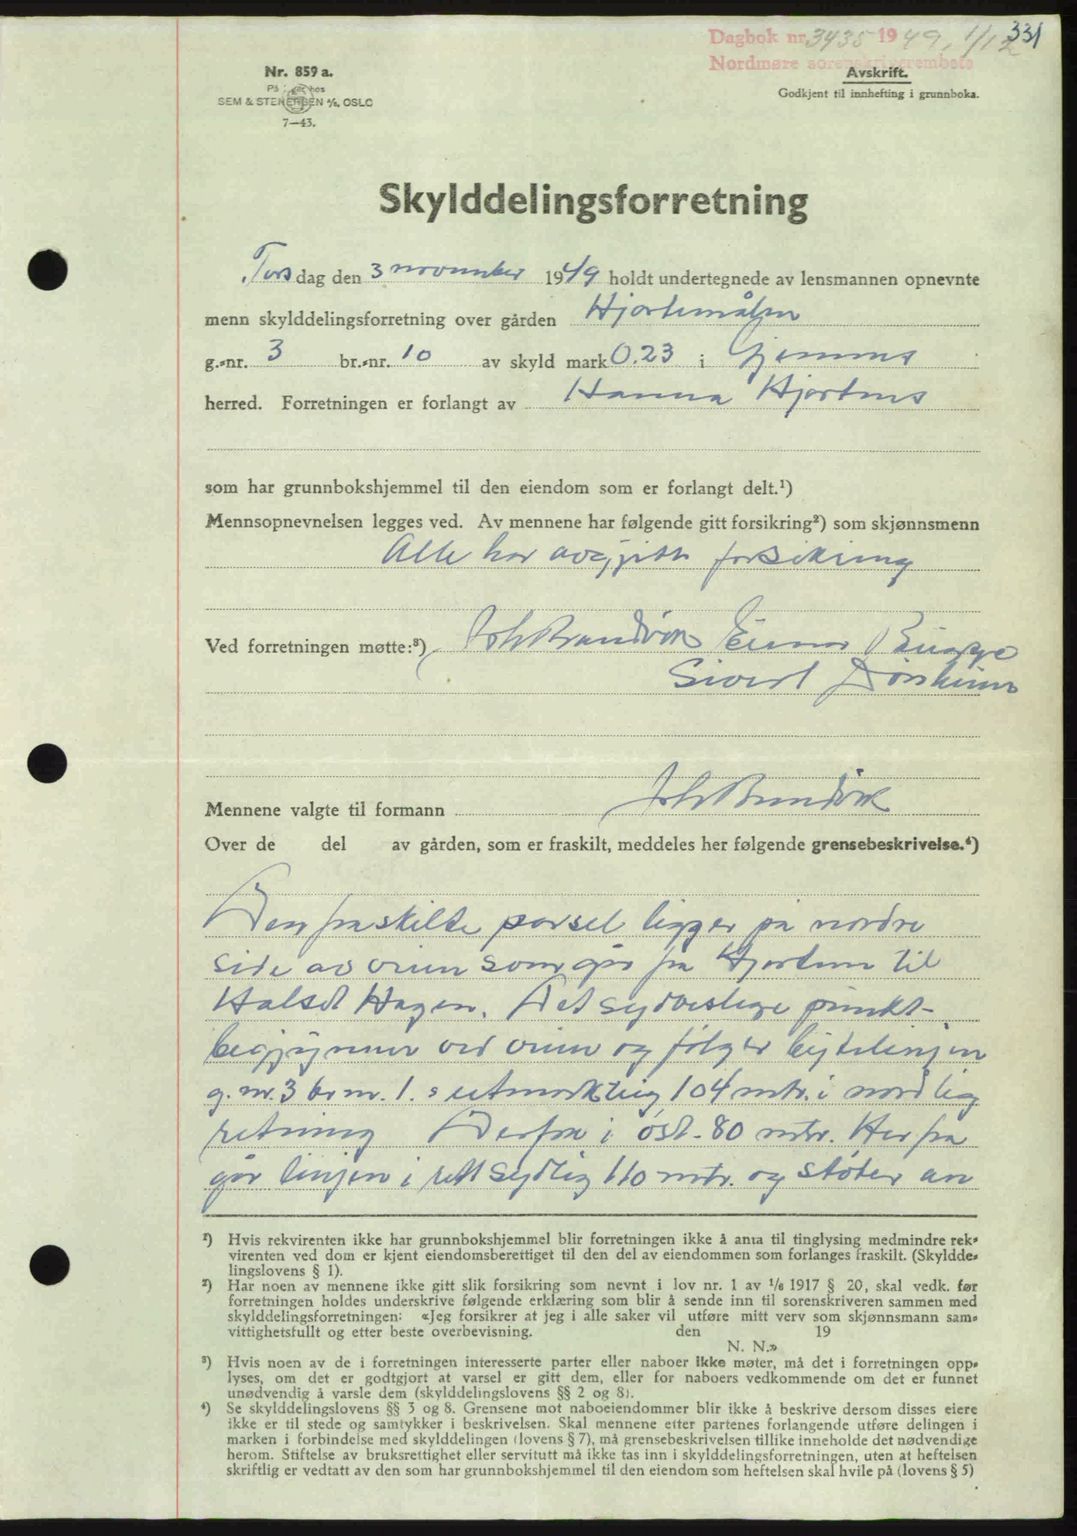 331
Dagbok nr. 3435 1949, 1/12
Nordmøre sorenskriverembete
Nr. 859 a.
Avskrift.
Godkjent til innhefting i grunnboka.
SEM & STENERSEN A/S, OSLO
7—43.
Skylddelingsforretning
Torsdag den 3 november 1949 holdt undertegnede av lensmannen opnevnte
menn skylddelingsforretning over gården Hjortemålen
g.-nr. 3 br.-nr. 10 av skyld mark 0.23 i Gjemnes
herred. Forretningen er forlangt av Hanna Hjortnes
som har grunnbokshjemmel til den eiendom som er forlangt delt.¹)
Mennsopnevnelsen legges ved. Av mennene har følgende gitt forsikring²) som skjønnsmenn
Alle har avgitt forsikring
Ved forretningen møtte:³) Joh Brandvik Einar Bugge
Sivert
Mennene valgte til formann Joh Brandvik
Over de del av gården, som er fraskilt, meddeles her følgende grensebeskrivelse.⁴)
Den fraskilte parsel ligger på nordre
side av veien som går fra Hjortnes til
Halset Hagen. Det sydvestlige punkt
begynner ved veien og følger bytelinjen
g. nr. 3 br nr. 1. s utmarkteig 104 mtr. i nordlig
retning Derfra i øst- 80 mtr. Her fra
går linjen i rett sydlig 110 mtr. og støter an
¹) Hvis rekvirenten ikke har grunnbokshjemmel blir forretningen ikke å anta til tinglysing medmindre rek-
virenten ved dom er kjent eiendomsberettiget til den del av eiendommen som forlanges fraskilt. (Skyldde-
lingslovens § 1).
²) Har noen av mennene ikke gitt slik forsikring som nevnt i lov nr. 1 av 1/6 1917 § 20, skal vedk. før
forretningen holdes underskrive følgende erklæring som blir å sende inn til sorenskriveren sammen med
skylddelingsforretningen: «Jeg forsikrer at jeg i alle saker vil utføre mitt verv som skjønnsmann sam-
vittighetsfullt og etter beste overbevisning. den 19
N. N.»
³) Hvis noen av de i forretningen interesserte parter eller naboer ikke møter, må det i forretningen opp-
lyses, om det er godtgjort at varsel er gitt dem, eller for naboers vedkommende om det er funnet
unødvendig å varsle dem (skylddelingslovens §§ 2 og 8).
⁴) Se skylddelingslovens §§ 3 og 8. Grensene mot naboeiendommer blir ikke å beskrive dersom disses eiere
ikke er til stede og samtykker i beskrivelsen. Skal mennene etter partenes forlangende utføre delingen i
marken i forbindelse med skylddelingen (lovens § 7), må grensebeskrivelsen tillike inneholde det nødvendige
herom. Stiftelse av bruksrettighet eller servitutt må ikke tas inn i skylddelingsforretningen, uten at heftelsen
skriftlig er vedtatt av den som har grunnbokshjemmel til den eiendom som heftelsen skal hvile på (lovens § 5)